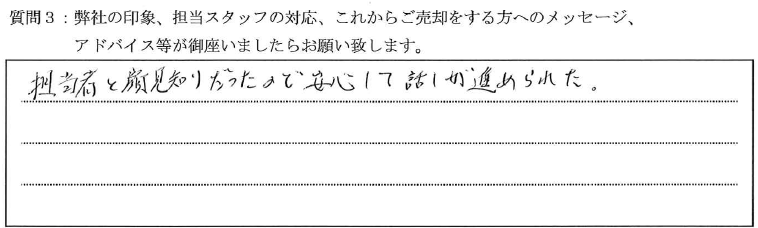 質問３：弊社の印象、担当スタッフの対応、これからご売却をする方へのメッセージ、
アドバイス等が御座いましたらお願い致します。
担当者と顔見知りだったので安心して話しが進められた。